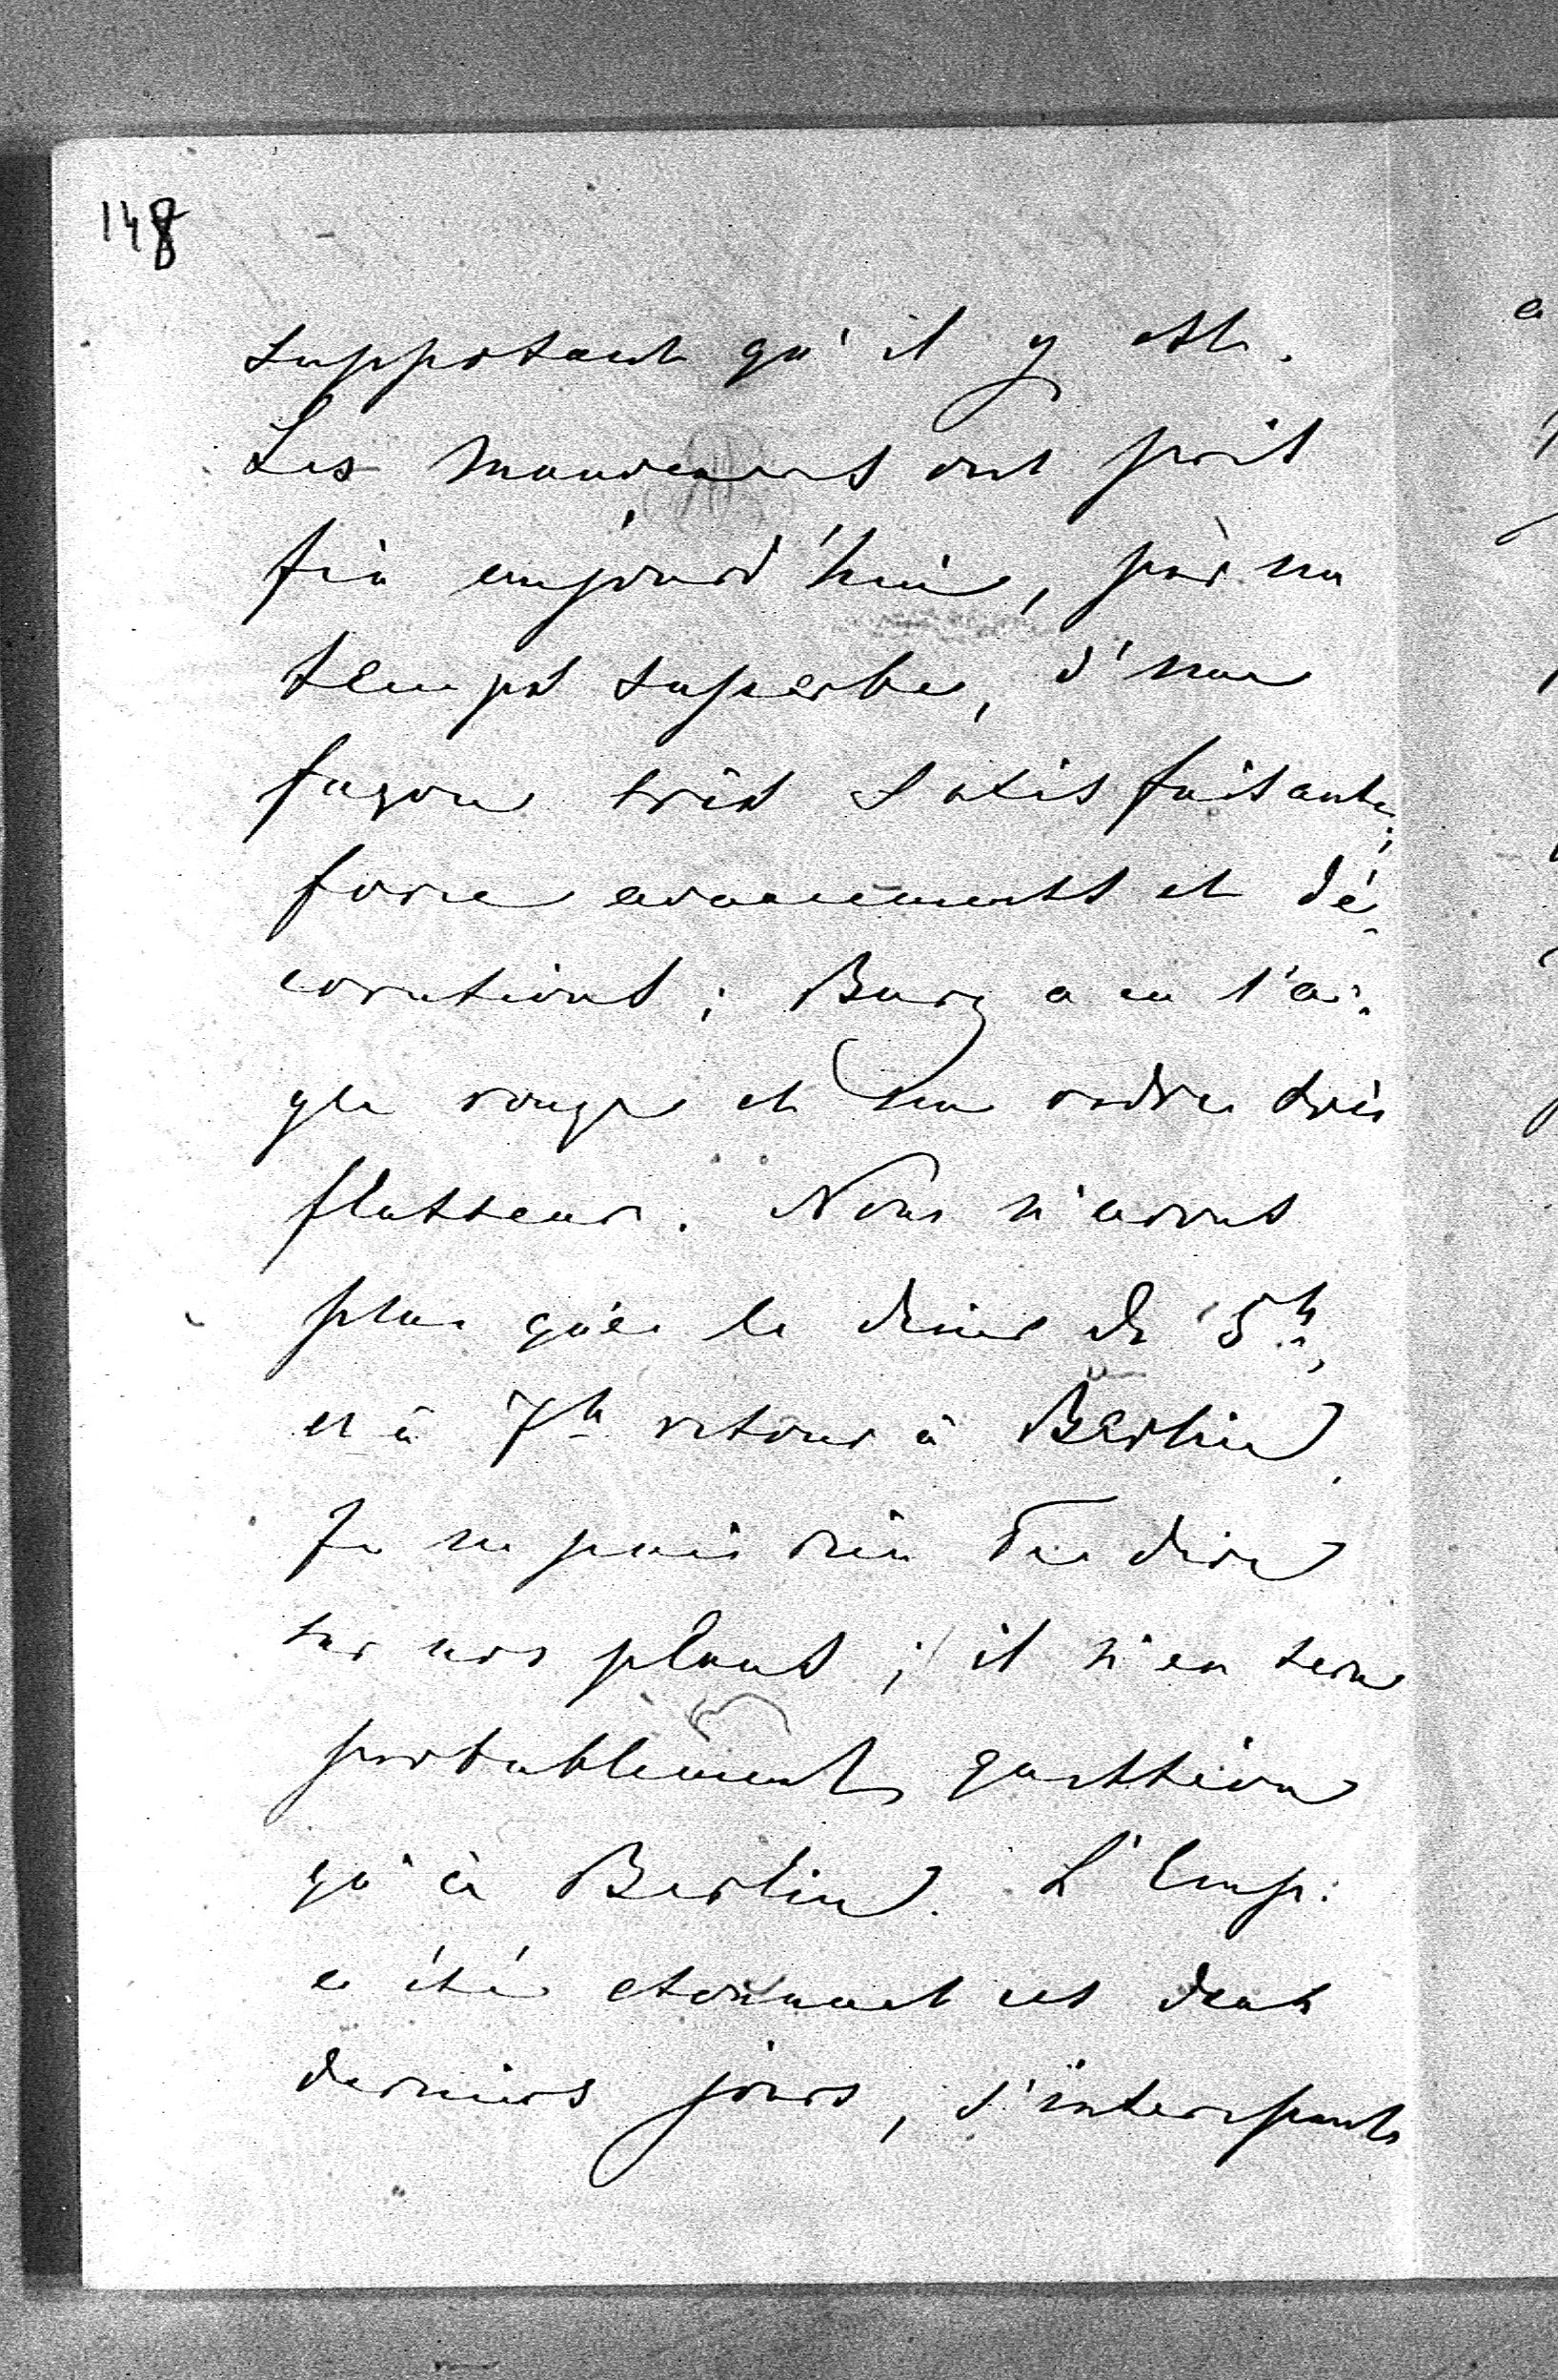 148
supposant qu'il y est.
Les manœuvres ont pris
fin aujourd'hui, par un
temps superbe, d'une
façon très satisfaisante;
force avancements et dé-
corations; Burg a eu l'ai-
gle rouge et un ordre très
flatteur. Nous n'avons
plus que le diner de 5h,
et à 7h retour à Berlin.
Je ne puis rien Te dire
sur nos plans; il n'en sera
probablement question
qu'à Berlin. L'Emp:
a été étonnant ces deux
derniers jours, s'interessant